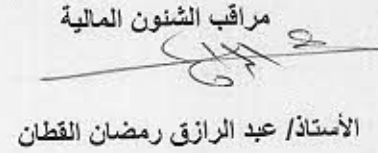 مراقب الشئون المالية
الأستاذ/ عبد الرازق رمضان القطان